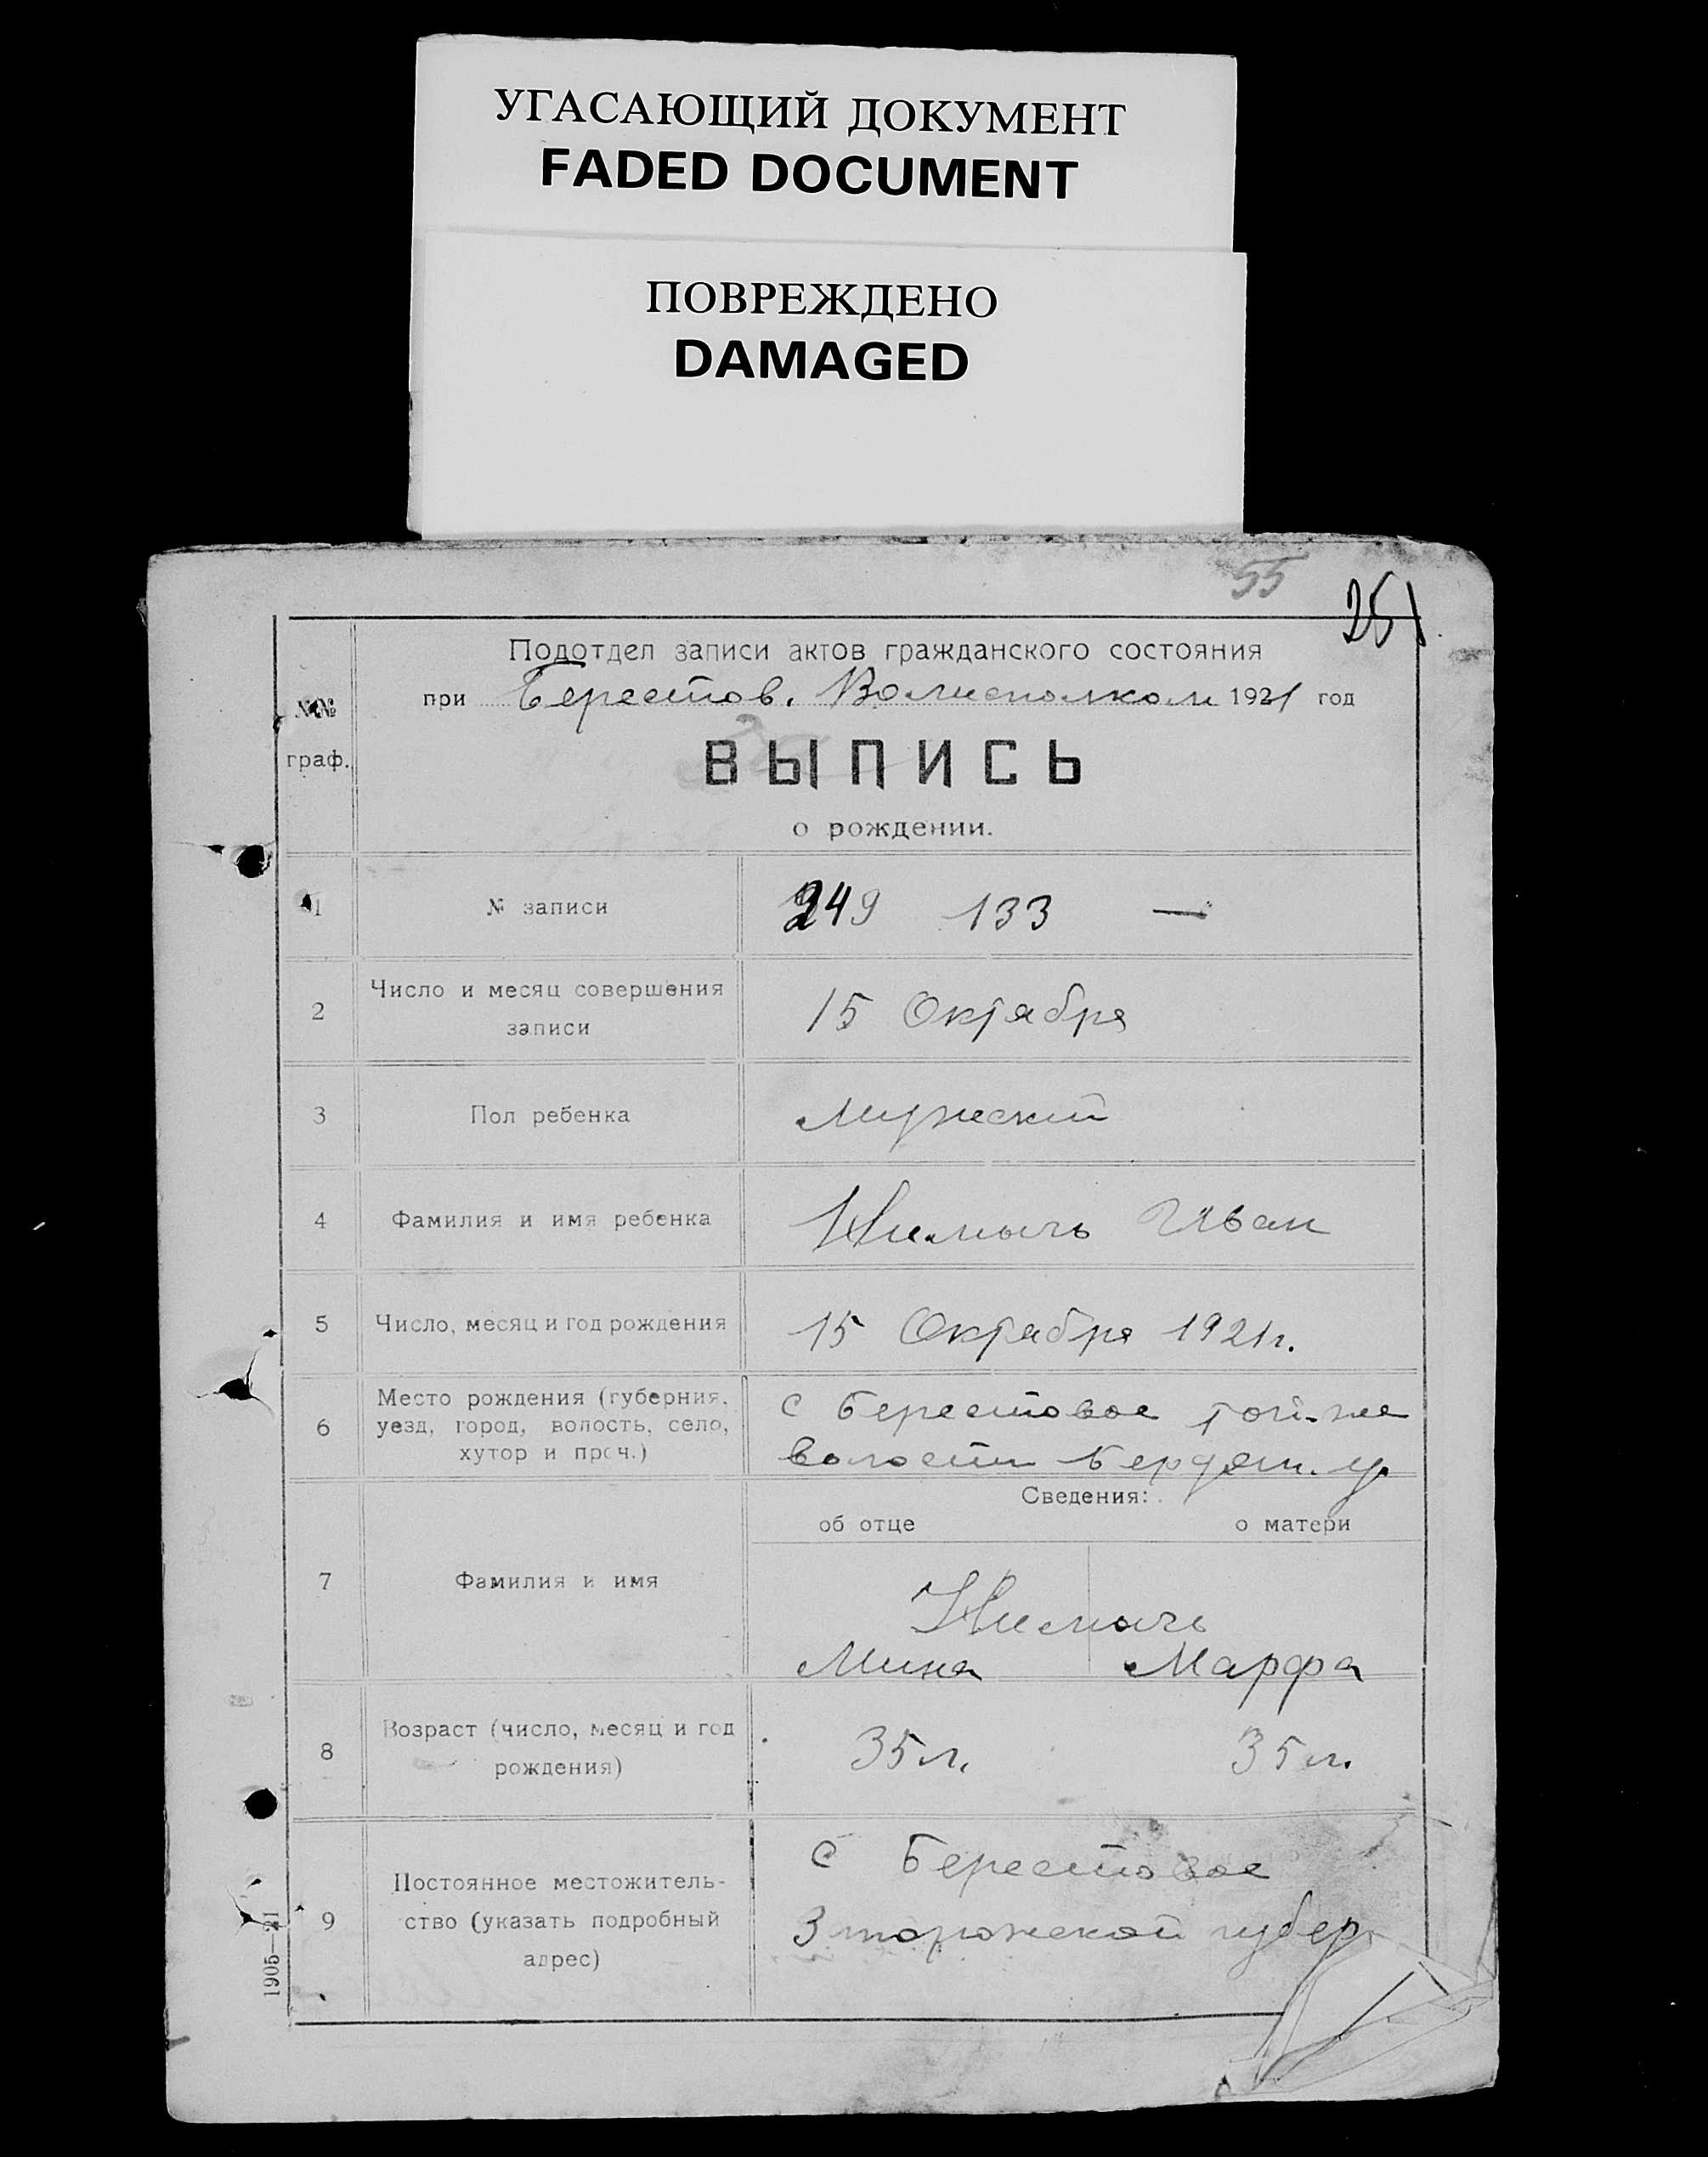 УГАСАЮЩИЙ ДОКУМЕНТ
FADED DOCUMENT
ПОВРЕЖДЕНО
DAMAGED
55
251
Подотдел записи актов гражданского состояния
при Берестов. Волисполком 1921 год
№№
граф.
ВЫПИСЬ
о рождении.
1 № записи 249 133 —
2 Число и месяц совершения
записи 15 Октября
3 Пол ребенка Мужеский
4 Фамилия и имя ребенка Иван
5 Число, месяц и год рождения 15 Октября 1921 г.
6 Место рождения (губерния,
уезд, город, волость, село,
хутор и проч.)
с Берестовое той-же
волости Бердян. у.
Сведения:
об отце о матери
7 Фамилия и имя
Мина Марфа
8 Возраст (число, месяц и год
рождения) 35 л. 35 л.
9 Постоянное местожитель-
ство (указать подробный
адрес)
с Берестовое
губер
1905—21